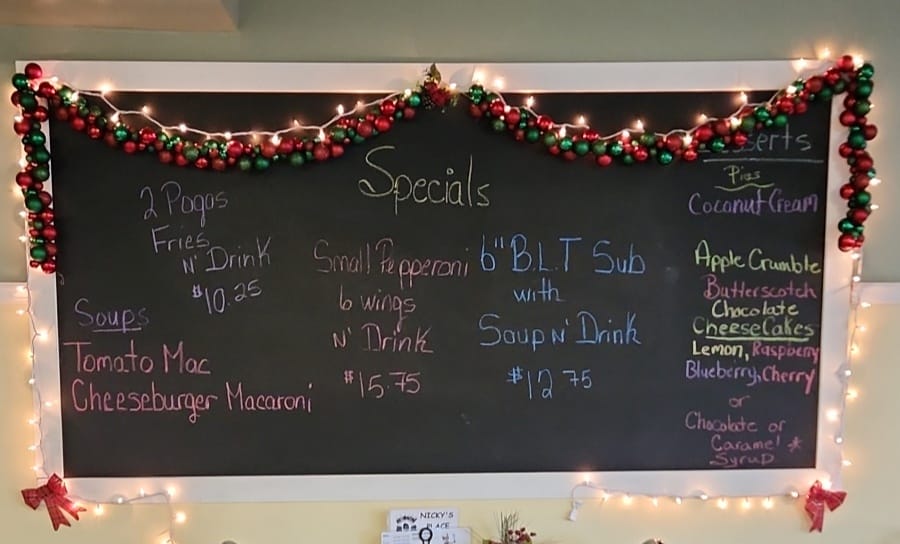 Specials
2 Pogos
Fries
N' Drink
$10.25
Soups
Tomato Mac
Cheeseburger Macaroni
Small Pepperoni
6 wings
N' Drink
$15.75
6" B.L.T Sub
with
Soup N' Drink
$12.75
Pies
Coconut Cream
Apple Crumble
Butterscotch
Chocolate
CheeseCakes
Lemon, Raspberry
Blueberry, Cherry
or
Chocolate or
Caramel *
Syrup
NICKY'S
PLACE